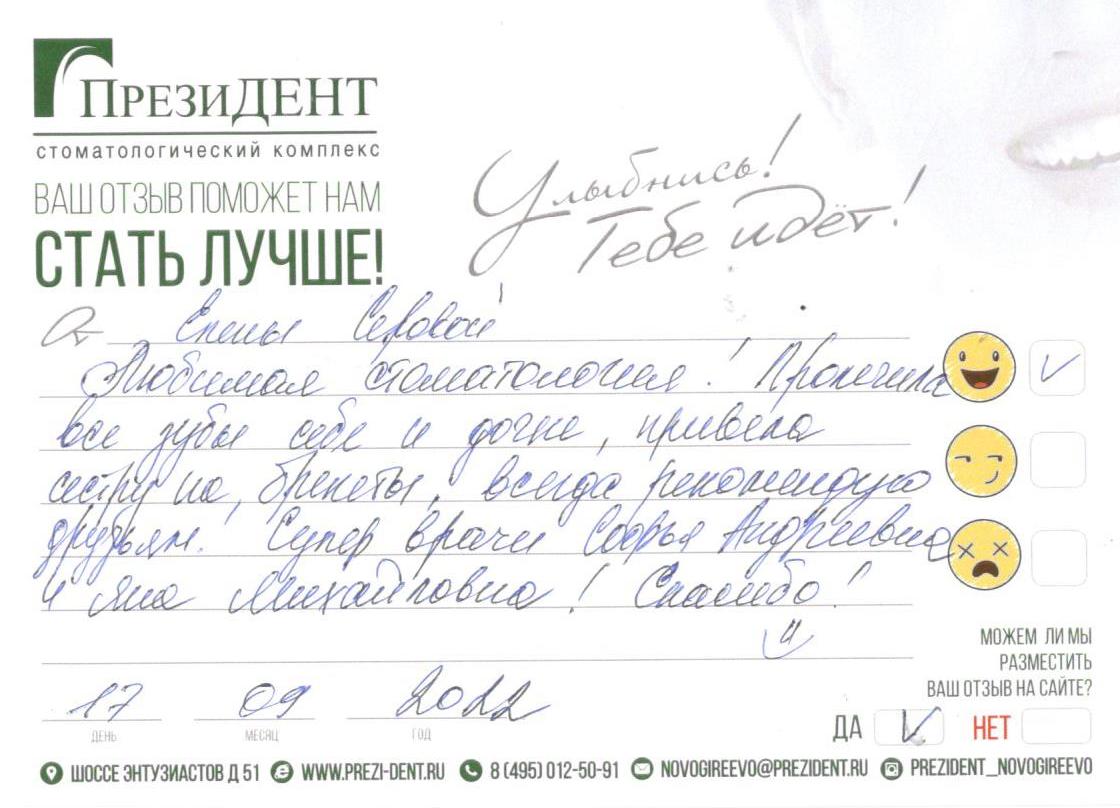 ПРЕЗИДЕНТ
СТОМАТОЛОГИЧЕСКИЙ КОМПЛЕКС
ВАШ ОТЗЫВ ПОМОЖЕТ НАМ
СТАТЬ ЛУЧШЕ!
Улыбнись!
Тебе идёт!
От Елены Серовой
Любимая стоматология! Пролечила
все зубы себе и дочке, привела
сестру на брекеты, всегда рекомендую
друзьям. Супер врачи Софья Андреевна
и Яна Михайловна! Спасибо!
17 09 2022
ДЕНЬ МЕСЯЦ ГОД
МОЖЕМ ЛИ МЫ
РАЗМЕСТИТЬ
ВАШ ОТЗЫВ НА САЙТЕ?
ДА НЕТ
ШОССЕ ЭНТУЗИАСТОВ Д 51 WWW.PREZI-DENT.RU 8 (495) 012-50-91 NOVOGIREEVO@PREZIDENT.RU PREZIDENT_NOVOGIREEVO